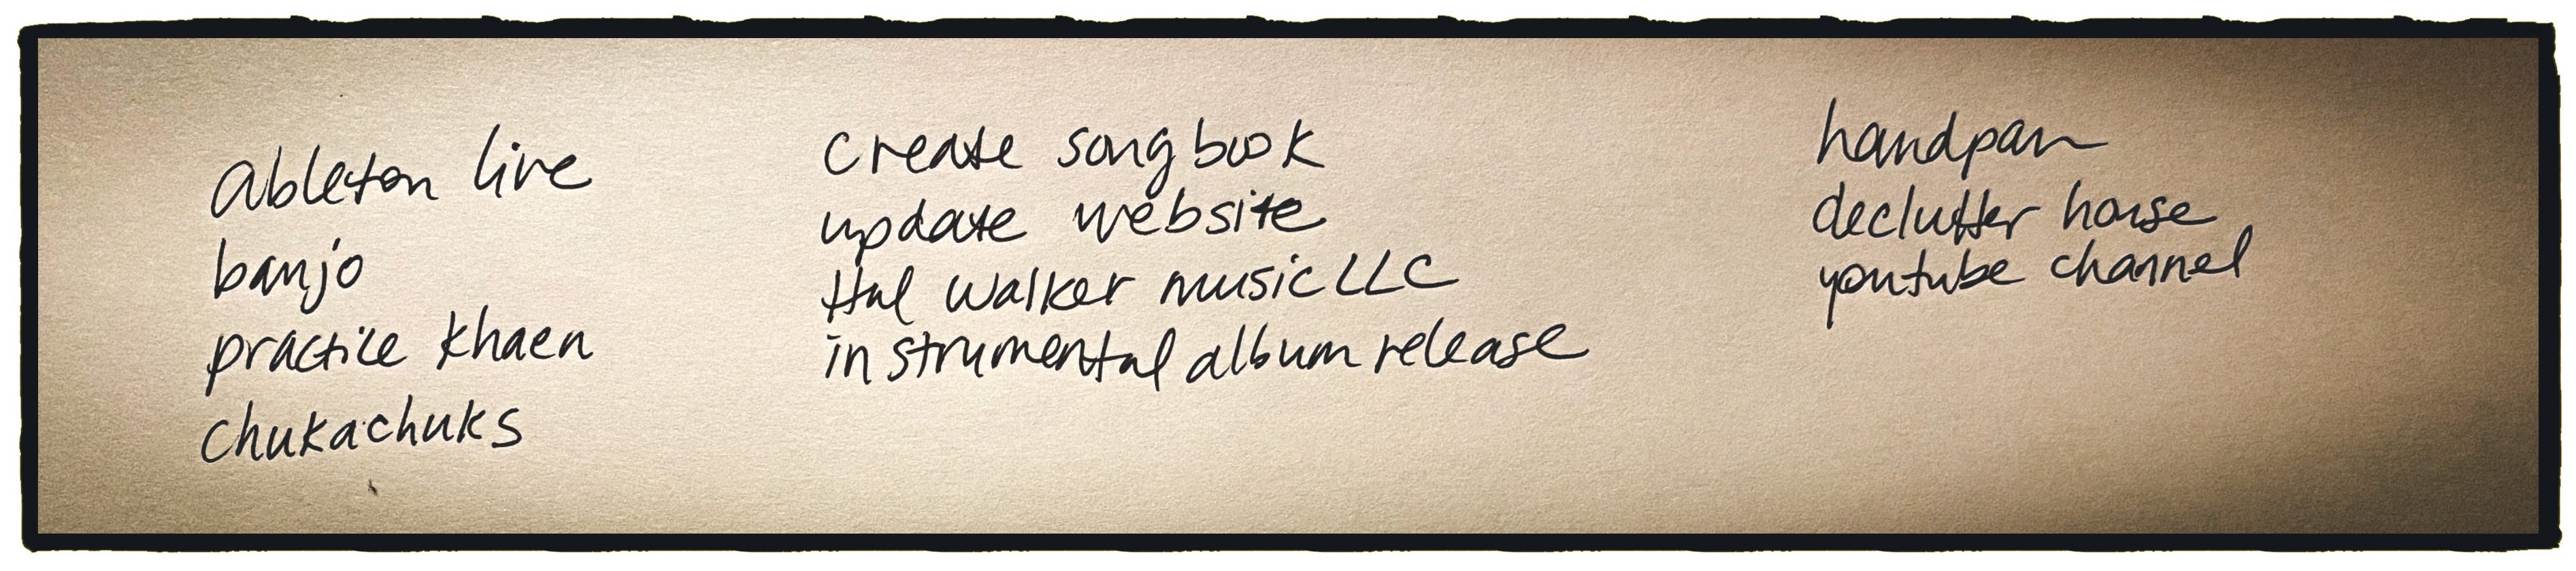 ableton live
banjo
practice khaen
chukachuks
create songbook
update website
Hal walker music LLC
instrumental album release
handpan
declutter house
youtube channel